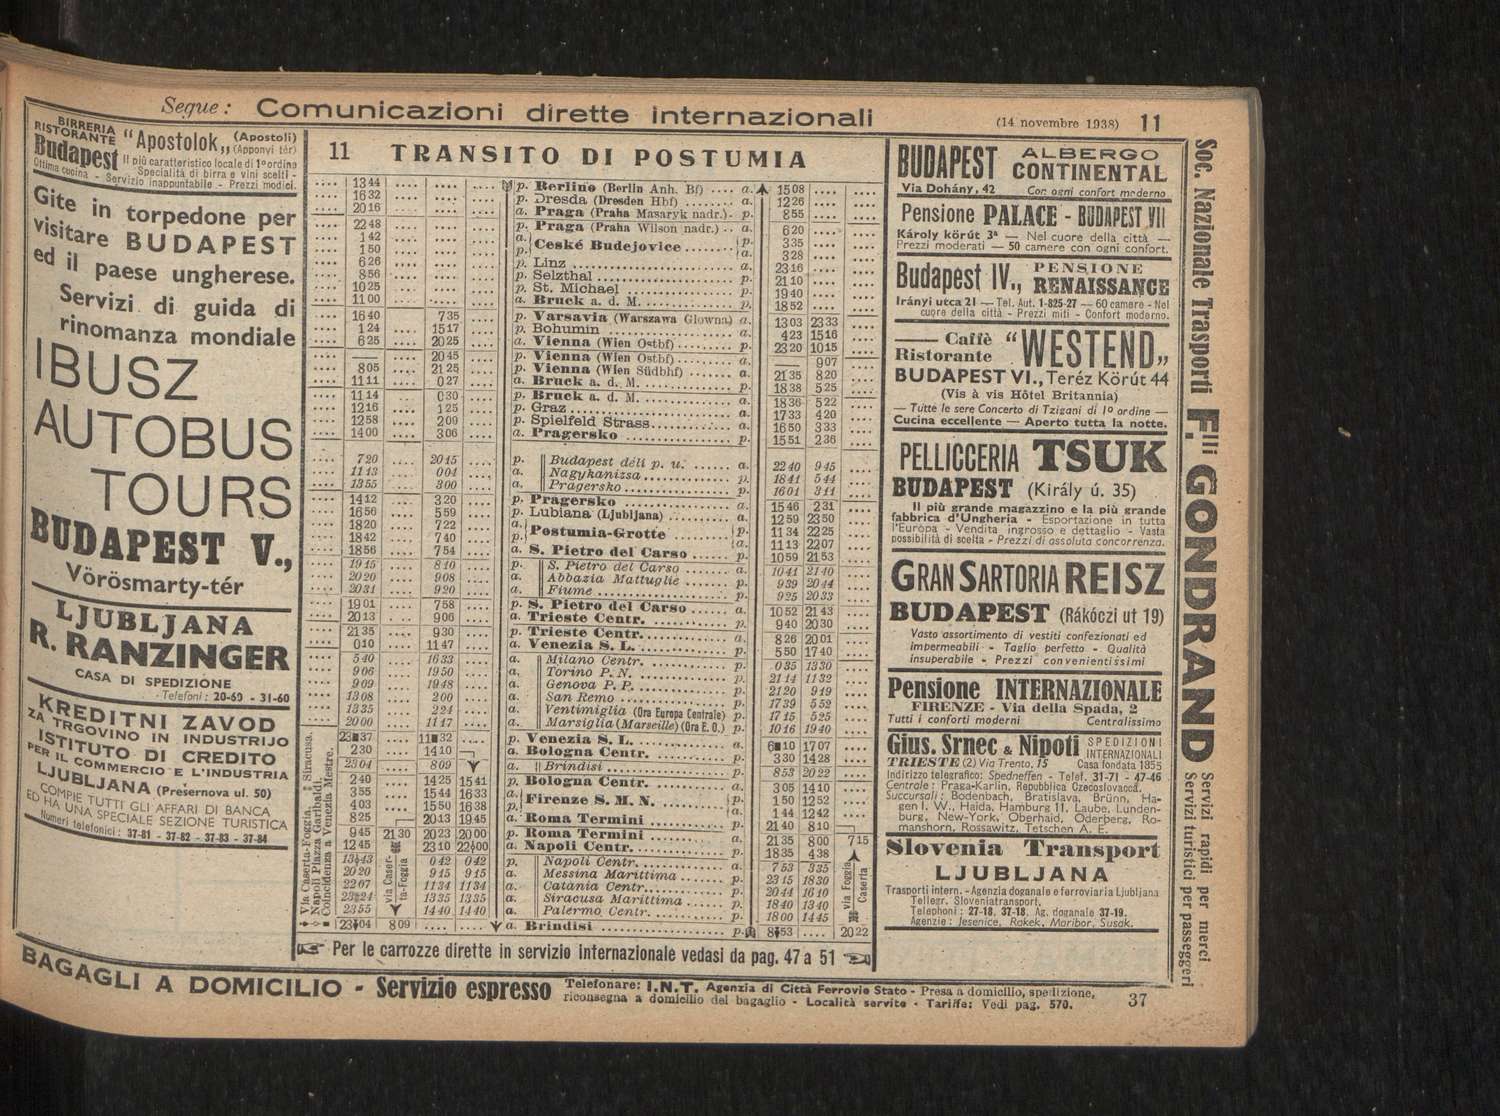 Segue: Comunicazioni dirette internazionali (14 novembre 1938) 11
BIRRERIA
RISTORANTE "Apostolok„ (Apostoli)
(Apponyi tér)
Budapest Il più caratteristico locale di 1º ordine
Ottima cucina - Specialità di birra e vini scelti -
Servizio inappuntabile - Prezzi modici.
Gite in torpedone per
visitare BUDAPEST
ed il paese ungherese.
Servizi di guida di
rinomanza mondiale
IBUSZ
AUTOBUS
TOURS
BUDAPEST V.,
Vörösmarty-tér
LJUBLJANA
R. RANZINGER
CASA DI SPEDIZIONE
Telefoni: 20-60 - 31-60
KREDITNI ZAVOD
ZA TRGOVINO IN INDUSTRIJO
ISTITUTO DI CREDITO
PER IL COMMERCIO E L'INDUSTRIA
LJUBLJANA (Presernova ul. 50)
COMPIE TUTTI GLI AFFARI DI BANCA
ED HA UNA SPECIALE SEZIONE TURISTICA
Numeri telefonici: 37-81 - 37-82 - 37-83 - 37-84
11 TRANSITO DI POSTUMIA
.... 1344 .... .... .... p. Berlino (Berlin Anh. Bf) .... a. 1508 .... ....
.... 1632 .... .... .... p. Dresda (Dresden Hbf) ........ a. 1226 .... ....
.... 2016 .... .... .... a. Praga (Praha Masaryk nadr.). p. 855 .... ....
.... 2248 .... .... .... p. Praga (Praha Wilson nadr.) .. a. 620 .... ....
.... 142 .... .... .... a. Ceské Budejovice p. 335 .... ....
.... 150 .... .... .... p. a. 328 .... ....
.... 626 .... .... .... p. Linz a. 2316 .... ....
.... 856 .... .... .... p. Selzthal a. 2110 .... ....
.... 1025 .... .... .... p. St. Michael a. 1940 .... ....
.... 1100 .... .... .... a. Bruck a. d. M. p. 1852 .... ....
.... 1640 .... 735 .... p. Varsavia (Warszawa Glowna) a. 1303 2333 ....
.... 124 .... 1517 .... p. Bohumin a. 423 1516 ....
.... 625 .... 2025 .... a. Vienna (Wien Ostbf) p. 2320 1015 ....
.... — .... 2045 .... p. Vienna (Wien Ostbf) a. — 907 ....
.... 805 .... 2125 .... p. Vienna (Wien Südbhf) a. 2135 820 ....
.... 1111 .... 027 .... a. Bruck a. d. M. p. 1838 525 ....
.... 1114 .... 030 .... p. Bruck a. d. M. a. 1836 522 ....
.... 1216 .... 125 .... p. Graz a. 1733 420 ....
.... 1258 .... 209 .... p. Spielfeld Strass a. 1650 333 ....
.... 1400 .... 306 .... a. Pragersko p. 1551 236 ....
.... 720 .... 2015 .... p. Budapest déli p. u. a. 2240 945 ....
.... 1113 .... 004 .... a. Nagykanizsa p. 1841 544 ....
.... 1355 .... 300 .... a. Pragersko p. 1601 311 ....
.... 1412 .... 320 .... p. Pragersko a. 1546 231 ....
.... 1656 .... 559 .... p. Lubiana (Ljubljana) a. 1259 2350 ....
.... 1820 .... 722 .... a. Postumia-Grotte p. 1134 2225 ....
.... 1842 .... 740 .... p. a. 1113 2207 ....
.... 1856 .... 754 .... a. S. Pietro del Carso p. 1059 2153 ....
.... 1915 .... 810 .... p. S. Pietro del Carso a. 1041 2140 ....
.... 2020 .... 908 .... a. Abbazia Mattuglie p. 939 2044 ....
.... 2031 .... 920 .... a. Fiume p. 925 2033 ....
.... 1901 .... 758 .... p. S. Pietro del Carso a. 1052 2143 ....
.... 2013 .... 906 .... a. Trieste Centr. p. 940 2030 ....
.... 2135 .... 930 .... p. Trieste Centr. a. 826 2001 ....
.... 010 .... 1147 .... a. Venezia S. L. p. 550 1740 ....
.... 540 .... 1633 .... a. Milano Centr. p. 035 1330 ....
.... 906 .... 1950 .... a. Torino P. N. p. 2114 1132 ....
.... 909 .... 1948 .... a. Genova P. P. p. 2120 919 ....
.... 1308 .... 200 .... a. San Remo p. 1739 552 ....
.... 1335 .... 224 .... a. Ventimiglia (Ora Europa Centrale) p. 1715 525 ....
.... 2000 .... 1117 .... a. Marsiglia (Marseille) (Ora E. O.) p. 1016 1940 ....
23■37 .... 11■32 .... p. Venezia S. L. a. 6■10 1707 ....
230 .... 1410 a. Bologna Centr. p. 330 1428 ....
2304 .... 809 a. Brindisi p. 853 2022 ....
240 .... 1425 1541 p. Bologna Centr. a. 305 1410 ....
355 .... 1544 1633 a. Firenze S. M. N. p. 150 1252 ....
403 .... 1550 1638 p. a. 144 1242 ....
825 .... 2013 1945 a. Roma Termini p. 2140 810
945 2130 2023 2000 p. Roma Termini a. 2135 800 715
1245 2310 22‡00 a. Napoli Centr. p. 1835 438
13‡43 042 042 p. Napoli Centr. a. 753 335
2020 915 915 a. Messina Marittima p. 2315 1830
2207 1134 1134 a. Catania Centr. p. 2044 1610
23‡24 1335 1335 a. Siracusa Marittima p. 1840 1340
2355 1440 1440 a. Palermo Centr. p. 1800 1445
23‡04 809 .... .... a. Brindisi p. 8‡53 .... 2022
via Caserta-Foggia
via Foggia Caserta
Via Caserta-Foggia. ‡ Siracusa.
Napoli Piazza Garibaldi.
■ Coincidenza a Venezia Mestre.
Per le carrozze dirette in servizio internazionale vedasi da pag. 47 a 51
BUDAPEST ALBERGO
CONTINENTAL
Via Dohány, 42 Con ogni confort moderno
Pensione PALACE - BUDAPEST VII
Károly körút 3ª — Nel cuore della città —
Prezzi moderati — 50 camere con ogni confort.
Budapest IV., PENSIONE
RENAISSANCE
Irányi utca 21 — Tel. Aut. 1-825-27 — 60 camere - Nel
cuore della città - Prezzi miti - Confort moderno.
Caffè
Ristorante "WESTEND„
BUDAPEST VI., Teréz Körút 44
(Vis à vis Hôtel Britannia)
— Tutte le sere Concerto di Tzigani di 1º ordine —
Cucina eccellente — Aperto tutta la notte.
PELLICCERIA TSUK
BUDAPEST (Király ú. 35)
Il più grande magazzino e la più grande
fabbrica d'Ungheria - Esportazione in tutta
l'Europa - Vendita ingrosso e dettaglio - Vasta
possibilità di scelta - Prezzi di assoluta concorrenza.
GRAN SARTORIA REISZ
BUDAPEST (Rákóczi ut 19)
Vasto assortimento di vestiti confezionati ed
impermeabili - Taglio perfetto - Qualità
insuperabile - Prezzi convenientissimi
Pensione INTERNAZIONALE
FIRENZE - Via della Spada, 2
Tutti i conforti moderni Centralissimo
Gius. Srnec & Nipoti SPEDIZIONI
INTERNAZIONALI
TRIESTE (2) Via Trento, 15 Casa fondata 1855
Indirizzo telegrafico: Spedneffen - Telef. 31-71 - 47-46
Centrale: Praga-Karlin, Repubblica Czecoslovacca.
Succursali: Bodenbach, Bratislava, Brünn, Ha-
gen I. W., Haida, Hamburg 11, Laube, Lunden-
burg, New-York, Oberhaid, Oderperg, Ro-
manshorn, Rossawitz, Tetschen A. E.
Slovenia Transport
LJUBLJANA
Trasporti intern. - Agenzia doganale e ferroviaria Ljubljana
Telegr. Sloveniatransport.
Telephoni: 27-18, 37-18. Ag. doganale 37-19.
Agenzie: Jesenice, Rakek, Maribor, Susak.
Soc. Nazionale Trasporti F.lli GONDRAND
Servizi rapidi per merci
Servizi turistici per passeggeri
BAGAGLI A DOMICILIO - Servizio espresso Telefonare: I.N.T. Agenzia di Città Ferrovie Stato - Presa a domicilio, spedizione,
riconsegna a domicilio del bagaglio - Località servite - Tariffe: Vedi pag. 570.
37